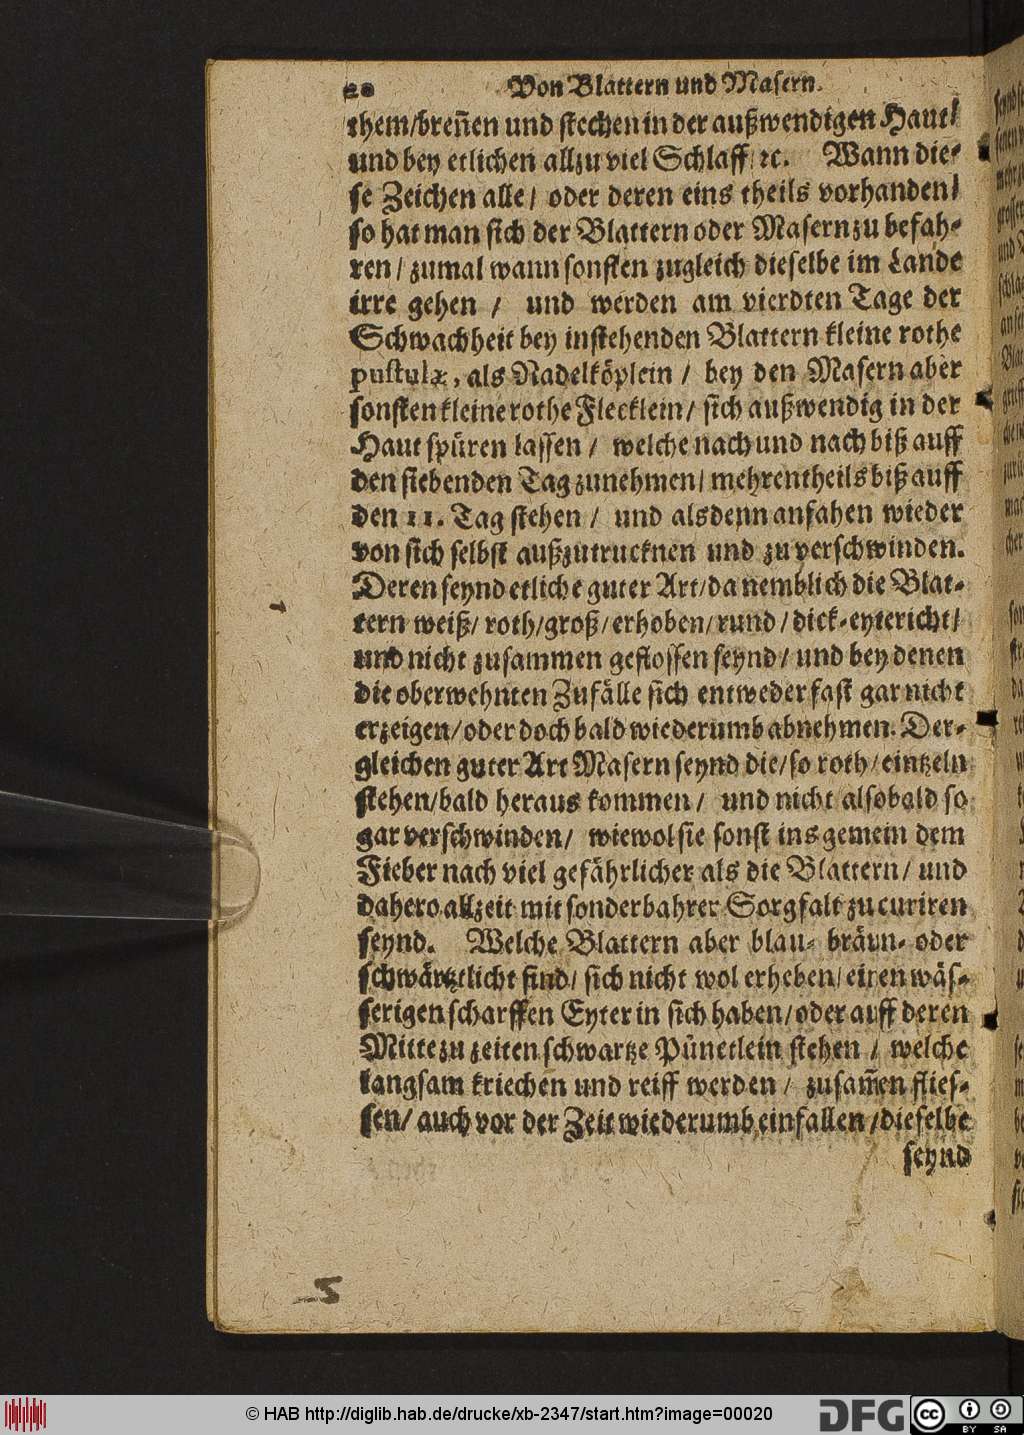 20 Von Blattern und Masern.
them/breñen und stechen in der außwendigen Haut/
und bey etlichen allzu viel Schlaff/ ꝛc. Wann die-
se Zeichen alle/ oder deren eins theils vorhanden/
so hat man sich der Blattern oder Masern zu befah-
ren/ zumal wann sonsten zugleich dieselbe im Lande
irre gehen / und werden am vierdten Tage der
Schwachheit bey instehenden Blattern kleine rothe
pustulæ, als Nadelköplein / bey den Masern aber
sonsten kleine rothe Flecklein/ sich außwendig in der
Haut spüren lassen / welche nach und nach biß auff
den siebenden Tag zunehmen/ mehrentheils biß auff
den 11. Tag stehen / und alsdenn anfahen wieder
von sich selbst außzutrucknen und zu verschwinden.
Deren seynd etliche guter Art/ da nemblich die Blat-
tern weiß/ roth/groß/erhoben/rund/dick-eytericht/
und nicht zusammen geflossen seynd/ und bey denen
die oberwehnten Zufälle sich entweder fast gar nicht
erzeigen/oder doch bald wiederumb abnehmen. Der-
gleichen guter Art Masern seynd die/so roth/eintzeln
stehen/bald heraus kommen/ und nicht alsobald so
gar verschwinden/ wiewol sie sonst ins gemein dem
Fieber nach viel gefährlicher als die Blattern/ und
dahero allzeit mit sonderbahrer Sorgfalt zu curiren
seynd. Welche Blattern aber blau- bräun- oder
schwärtzlicht sind/ sich nicht wol erheben/einen wäs-
serigen scharffen Eyter in sich haben/oder auff deren
Mitte zu zeiten schwartze Pünctlein stehen / welche
langsam kriechen und reiff werden / zusam̃en flies-
sen/ auch vor der Zeit wiederumb einfallen/dieselbe
seynd
5
© HAB http://diglib.hab.de/drucke/xb-2347/start.htm?image=00020
DFG
cc
BY SA